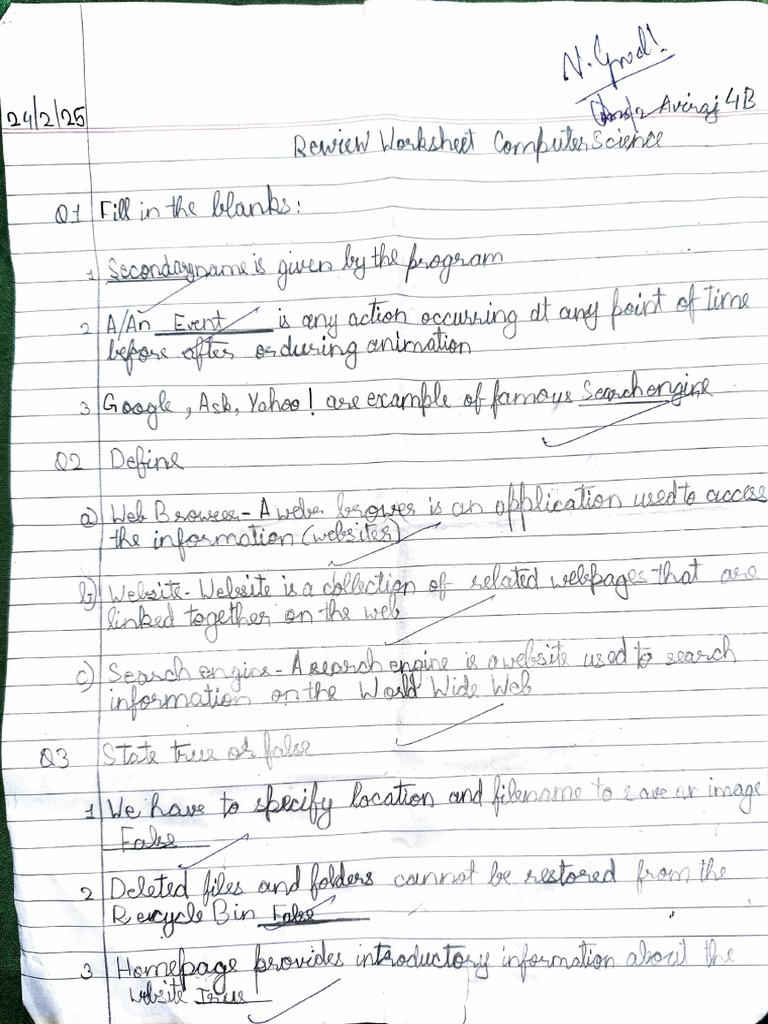 N. Good!
24/2/25
Aviraj 4B
Review Worksheet Computer Science
Q1 Fill in the blanks:
1 Secondary name is given by the program
2 A/An Event is any action occurring at any point of time
before after or during animation
3 Google, Ask, Yahoo! are example of famous Search engine
Q2 Define
a) Web Browser - A webs brower is an application used to access
the information (websites)
b) Website - Website is a collection of related webpages that are
linked together on the web
c) Search engine - A search engine is a website used to search
information on the World Wide Web
Q3 State true or false
1 We have to specify location and filename to save an image
False
2 Deleted files and folders cannot be restored from the
Recycle Bin False
3 Homepage provides introductory information about the
website True